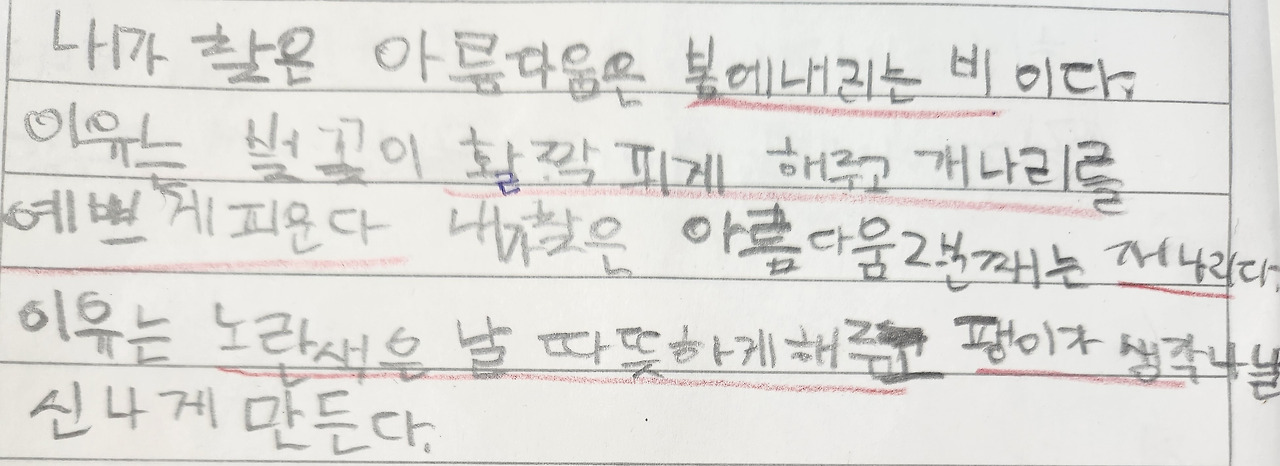 내가 찰은 아름다움은 봄에내리는 비 이다.
이유는 벚꽃이 활짝 피게 해주고 개나리를
예쁘게피운다 내가찰은 아름다움2번째는 저나리다.
이유는 노란색은 날 따뜻하게해주고 팽이가 생각나 날
신나게 만든다.